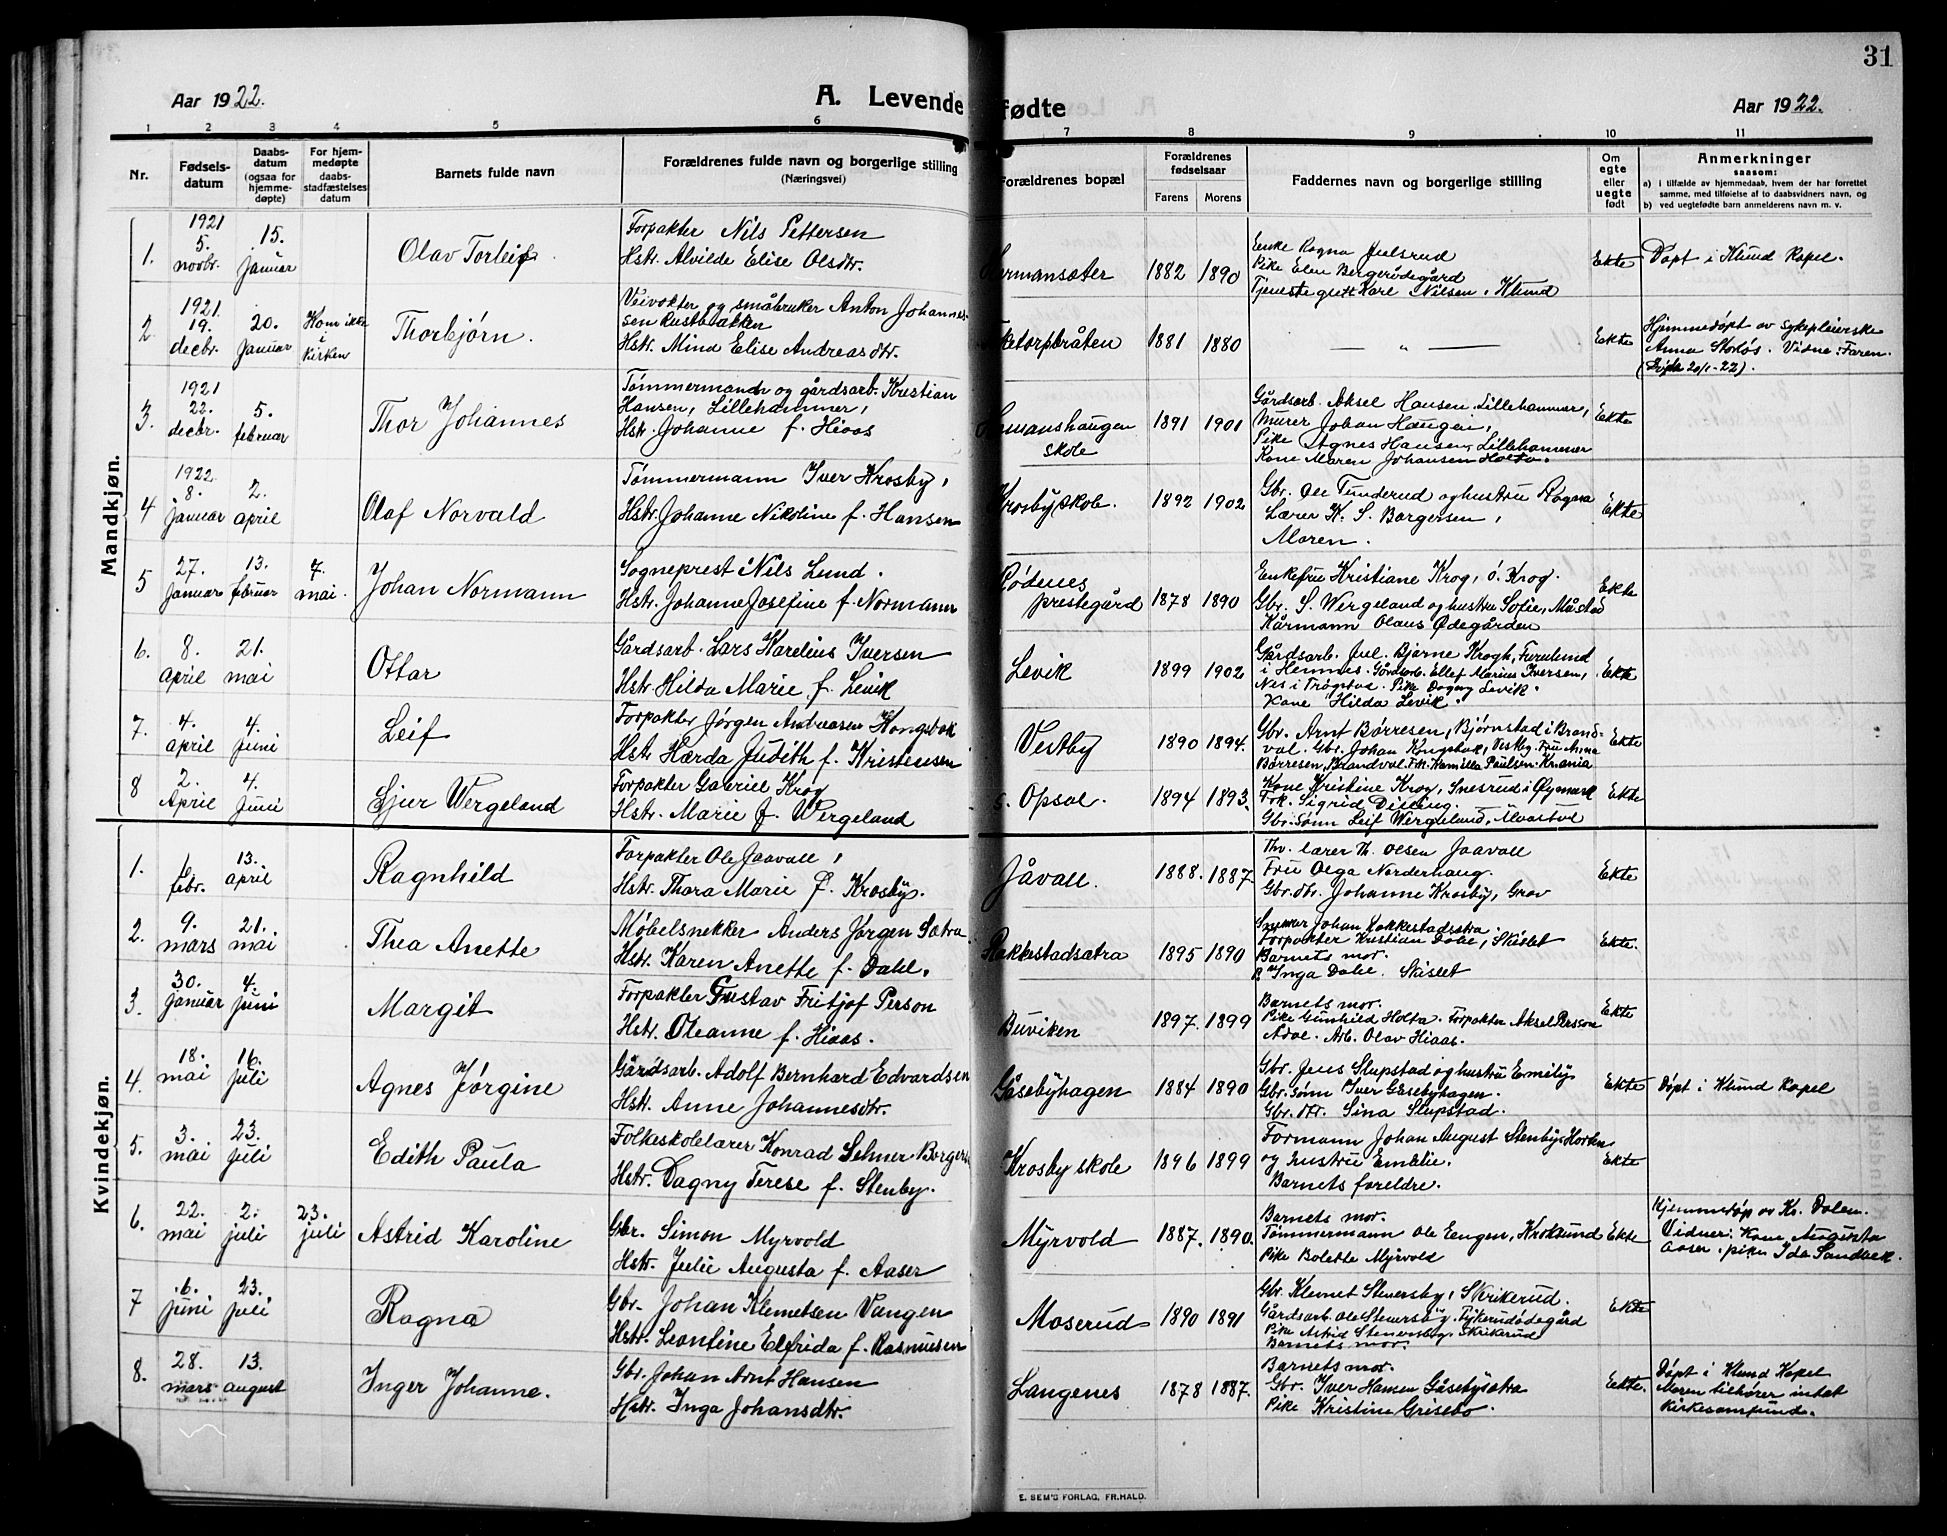 31
Aar 1922.
A. Levende fødte
Aar 1922.
1 2 3 4 5 6 7 8 9 10 11
Nr.
Fødsels-
datum
Daabs-
datum
(ogsaa for
hjemme-
døpte)
For hjem-
medøpte
daabs-
stadfæstelses
datum
Barnets fulde navn
Forældrenes fulde navn og borgerlige stilling
(Næringsvei)
Forældrenes bopæl
Forældrenes
fødselsaar
Farens Morens
Faddernes navn og borgerlige stilling
Om
egte
eller
uegte
født
Anmerkninger
saasom:
a) i tilfælde av hjemmedaab, hvem der har forrettet
samme, med tilføielse af to daabsvidners navn, og
b) ved uegtefødte barn anmelderens navn m. v.
Mandkjøn.
1.
1921
5.
novbr.
15.
januar
Olav Torleif
Forpakter Nils Pettersen
Hstr. Alvilde Elise Olsdtr.
Hermansæter
1882 1890
Enke Ragna Julsrud
Pike Elen Bergerødegård
Tjenestegutt Karl Nilsen, Klund
Ekte
Døpt i Klund Kapel.
2.
1921.
19.
decbr.
20.
januar
Kom ikke
i
kirken
Thorbjørn.
Veivokter og småbruker Anton Johannes-
sen Rustbakken
Hstr. Mind Elise Andreasdtr.
1881 1880
— „ —
Ekte
Hjemmedøpt av sykepleierske
Anna Storløs. Vidne: Faren.
3.
1921
22.
decbr.
5.
februar
Thor Johannes
Tømmermand og gårdsarb. Kristian
Hansen, Lillehammer,
Hstr. Johanne f. Hiaas
skole
1891 1901
Gårdsarb. Aksel Hansen, Lillehammer,
Murer Johan Haugen,
Pike Agnes Hansen, Lillehammer
Kone Maren Johansen Holta.
Ekte
4
1922.
8.
januar
2.
april
Olaf Norvald
Tømmermann Iver Krosby,
Hstr. Johanne Nikoline f. Hansen
Krosby skole.
1892 1902
Gbr. Ole Tunderud og hustru Ragna
Lærer K. S. Borgersen,
Moren.
Ekte
5
27.
januar
13.
februar
7.
mai.
Johan Normann
Sogneprest Nils Lund.
Hstr. Johanne Josefine f. Normann
Rødenes
prestegård
1878 1890
Enkefru Kristiane Krog, ö. Krog.
Gbr. S. Wergeland og hustru Sofie, Måstad
Kårmann Olaus Ødegården
Ekte
6.
8.
april
21.
mai
Ottar
Gårdsarb. Lars Karelius Iversen
Hstr. Hilda Marie f. Levik
Levik
1899 1902
Gårdsarb. Jul. Bjarne Krogh, Furulund
i Hemnes. Gårdsarb. Ellef Marius Iversen,
Nes i Trøgstad. Pike Dagny Levik.
Kone Hilda Levik.
Ekte
7.
4.
april
4.
juni
Leif
Forpakter Jørgen Andreasen Kongsbak
Hstr. Hærda Judith f. Kristensen
Vestby
1890 1894.
Gbr. Arnt Børresen, Bjørnstad i Brand-
val. Gbr. Johan Kongsbak, Vestby. Fru Anna
Børresen, Brandval. Frk. Kamilla Paulsen. Kr.ania
Ekte
8
2.
April
4.
juni
Sjur Wergeland
Forpakter Gabriel Krog
Hstr. Marie f. Wergeland
s. Opsal.
1894 1893.
Kone Kristine Krog, Snesrud i Øymark
Frk. Sigrid
Gbr.sønn Leif Wergeland,
Ekte
Kvindekjøn.
1.
febr.
13.
april
Ragnhild
Forpakter Ole Jaavall,
Hstr. Thora Marie f. Krosby.
Jåvall.
1888. 1887.
Thv. lærer Th. Olsen Jaavall
Fru Olga Norderhaug.
Gbr.dtr. Johanne Krosby, Grav
Ekte
2.
9.
mars
21.
mai
Thea Anette
Møbelsnekker Anders Jørgen Sætra
Hstr. Karen Anette f. Dahl.
Rakkestadsætra
1895 1890
Johan Rakkestadsætra
Forpakter Kristian Dalie, Skislet
Barnets mor.
P. Inga Dalie, Skislet
Ekte.
3.
30.
januar
4.
juni
Margit
Forpakter Gustav Fritjof Person
Hstr. Oleanne f. Hiaas.
Buviken
1897. 1899
Barnets mor.
Pike Gunhild Holta. Forpakter Aksel Persson
Arb. Olav Hiaas.
Ekte
4.
18.
mai
16.
juli
Agnes Jørgine
Gårdsarb. Adolf Bernhard Edvardsen
Hstr. Anne Johannesdtr.
Gåsebyhagen
1884 1890
Gbr. Jens Slupstad og hustru Ermily
Gbr.sønn Iver Gåsebyhagen.
Gbr.dtr. Sina Slupstad.
Ekte
Døpt i Klund Kapel
5.
3.
mai
23.
juli
Edith Paula
Folkeskolelærer Konrad Selmer Borgers
Hstr. Dagny Terese f. Stenby.
Krosby skole
1896 1899
Formann Johan August Stenby, Horten
og hustru Emilie.
Barnets foreldre.
Ekte
6.
22.
mai
2.
juli
23.
juli
Astrid Karoline
Gbr. Simon Myrvold
Hstr. Julie Augusta f. Aaser
Myrvold
1887. 1890.
Barnets mor.
Tømmermann Ole Engen, Kroksund
Pike Bolette Myrvold
Ekte
Hjemmedøp av Kr. Dalen.
Vidner: Kone Augusta
Aaser, pike Ida Sandbæk.
7
6.
juni
23.
juli
Ragna
Gbr. Johan Klemetsen Vangen
Hstr. Leontine Elfrida f. Rasmussen
Moserud
1890 1891
Gbr. Klemet Stenersby, Skrikerud.
Gårdsarb. Ole Stenersby,
Pike Astrid Stenersby, Skrikerud
Barnets mor.
Ekte
8.
28.
mars
13.
august
Inger Johanne.
Gbr. Johan Arnt Hansen
Hstr. Inga Johansdtr.
Langenes
1878 1887.
Barnets mor.
Gbr. Iver Hansen Gåsebysætra
Pike Kristine Grisebo.
Ekte.
Døpt i Klund Kapel
Moren tilhører intet
kirkesamfund.
E. SEM'S FORLAG, FR.HALD.